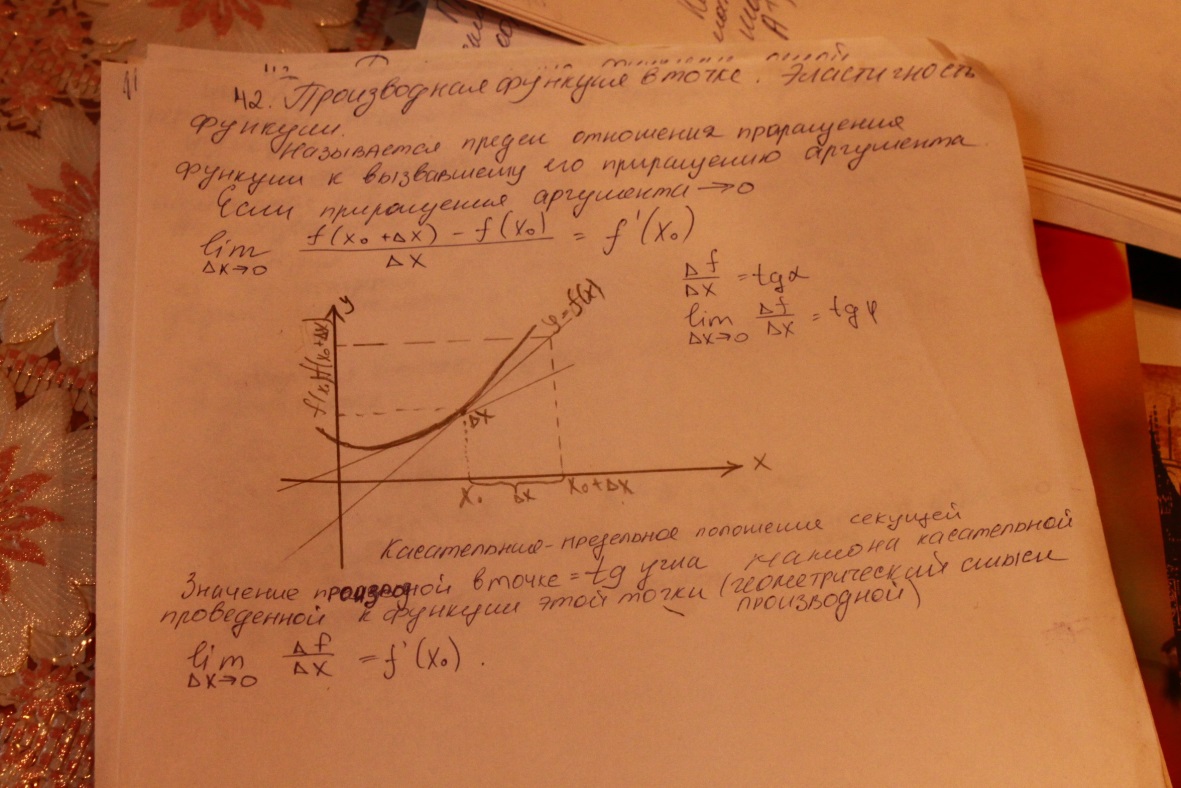 42. Производная функция в точке. Эластичность
функции.
Называется предел отношения приращения
функции к вызвавшему его приращению аргумента
Если приращения аргумента → 0
lim Δx→0 (f(x₀ + Δx) − f(x₀)) / Δx = f'(x₀)
Δf/Δx = tg α
lim Δx→0 Δf/Δx = tg φ
y
y = f(x)
f(x₀) f(x₀+Δx)
Δx
x
x₀ Δx x₀+Δx
Касательная - предельное положение секущей
Значение производной в точке = tg угла наклона касательной
проведенной к функции этой точки (геометрический смысл
производной)
lim Δx→0 Δf/Δx = f'(x₀).